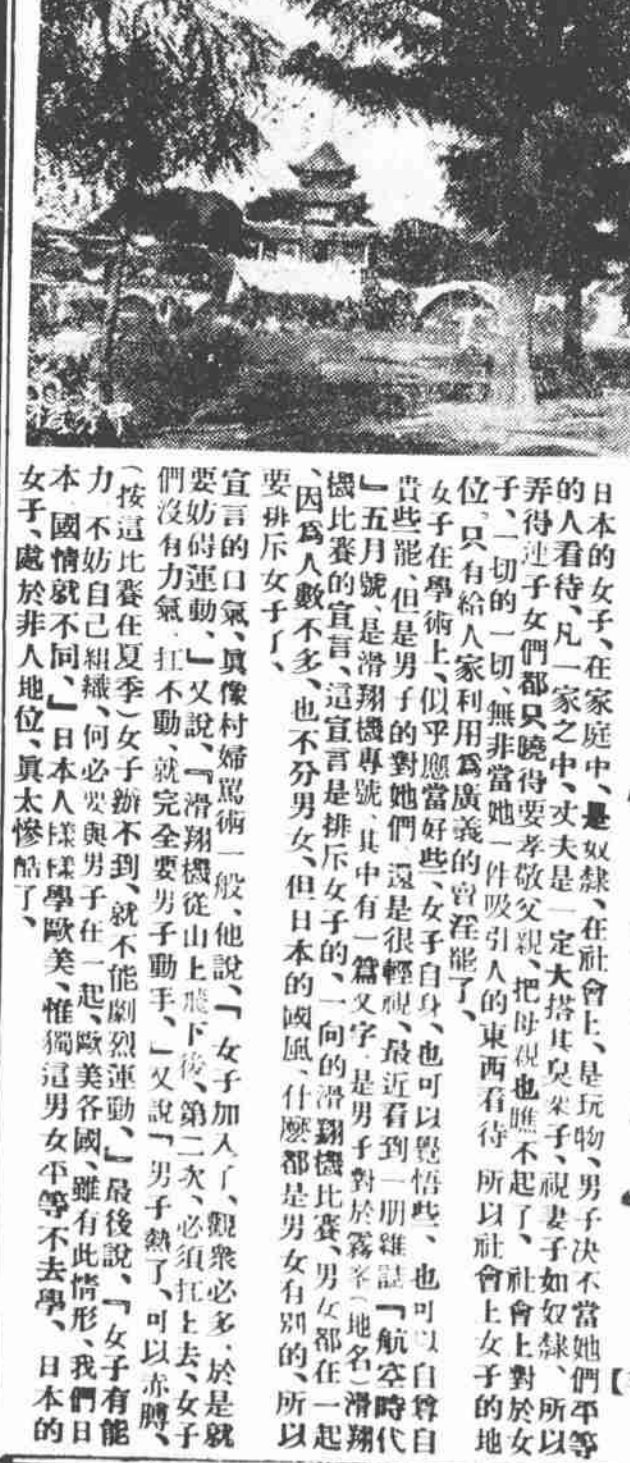 日本的女子、在家庭中、是奴隸、在社會上、是玩物、男子决不當她們平等
的人看待、凡一家之中、丈夫是一定大搭其臭架子、視妻子如奴隸、所以
弄得連子女們都只曉得要孝敬父親、把母親也瞧不起了、社會上對於女
子、一切的一切、無非當她一件吸引人的東西看待 所以社會上女子的地
位、只有給人家利用爲廣義的賣淫罷了、
女子在學術上、似乎應當好些、女子自身、也可以覺悟些、也可以自尊自
貴些罷、但是男子的對她們 還是很輕視、最近看到一册雜誌『航空時代
』五月號、是滑翔機專號、其中有一篇文字、是男子對於霧峯(地名)滑翔
機比賽的宣言、這宣言是排斥女子的、一向的滑翔機比賽、男女都在一起
、因爲人數不多、也不分男女、但日本的國風、什麼都是男女有別的、所以
要排斥女子了、
宣言的口氣、眞像村婦罵街一般、他說、「女子加入了、觀衆必多、於是就
要妨碍運動、」又說、『滑翔機從山上飛下後、第二次、必須扛上去、女子
們沒有力氣、扛不動、就完全要男子動手、」又說「男子熱了、可以赤膊、
(按這比賽在夏季)女子辦不到、就不能劇烈運動、』最後說、『女子有能
力、不妨自己組織、何必要與男子在一起、歐美各國、雖有此情形、我們日
本、國情就不同、』日本人樣樣學歐美、惟獨這男女平等不去學、日本的
女子、處於非人地位、眞太慘酷了、